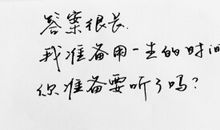 答案很长.
我准备用一生的时间
你准备要听了吗?